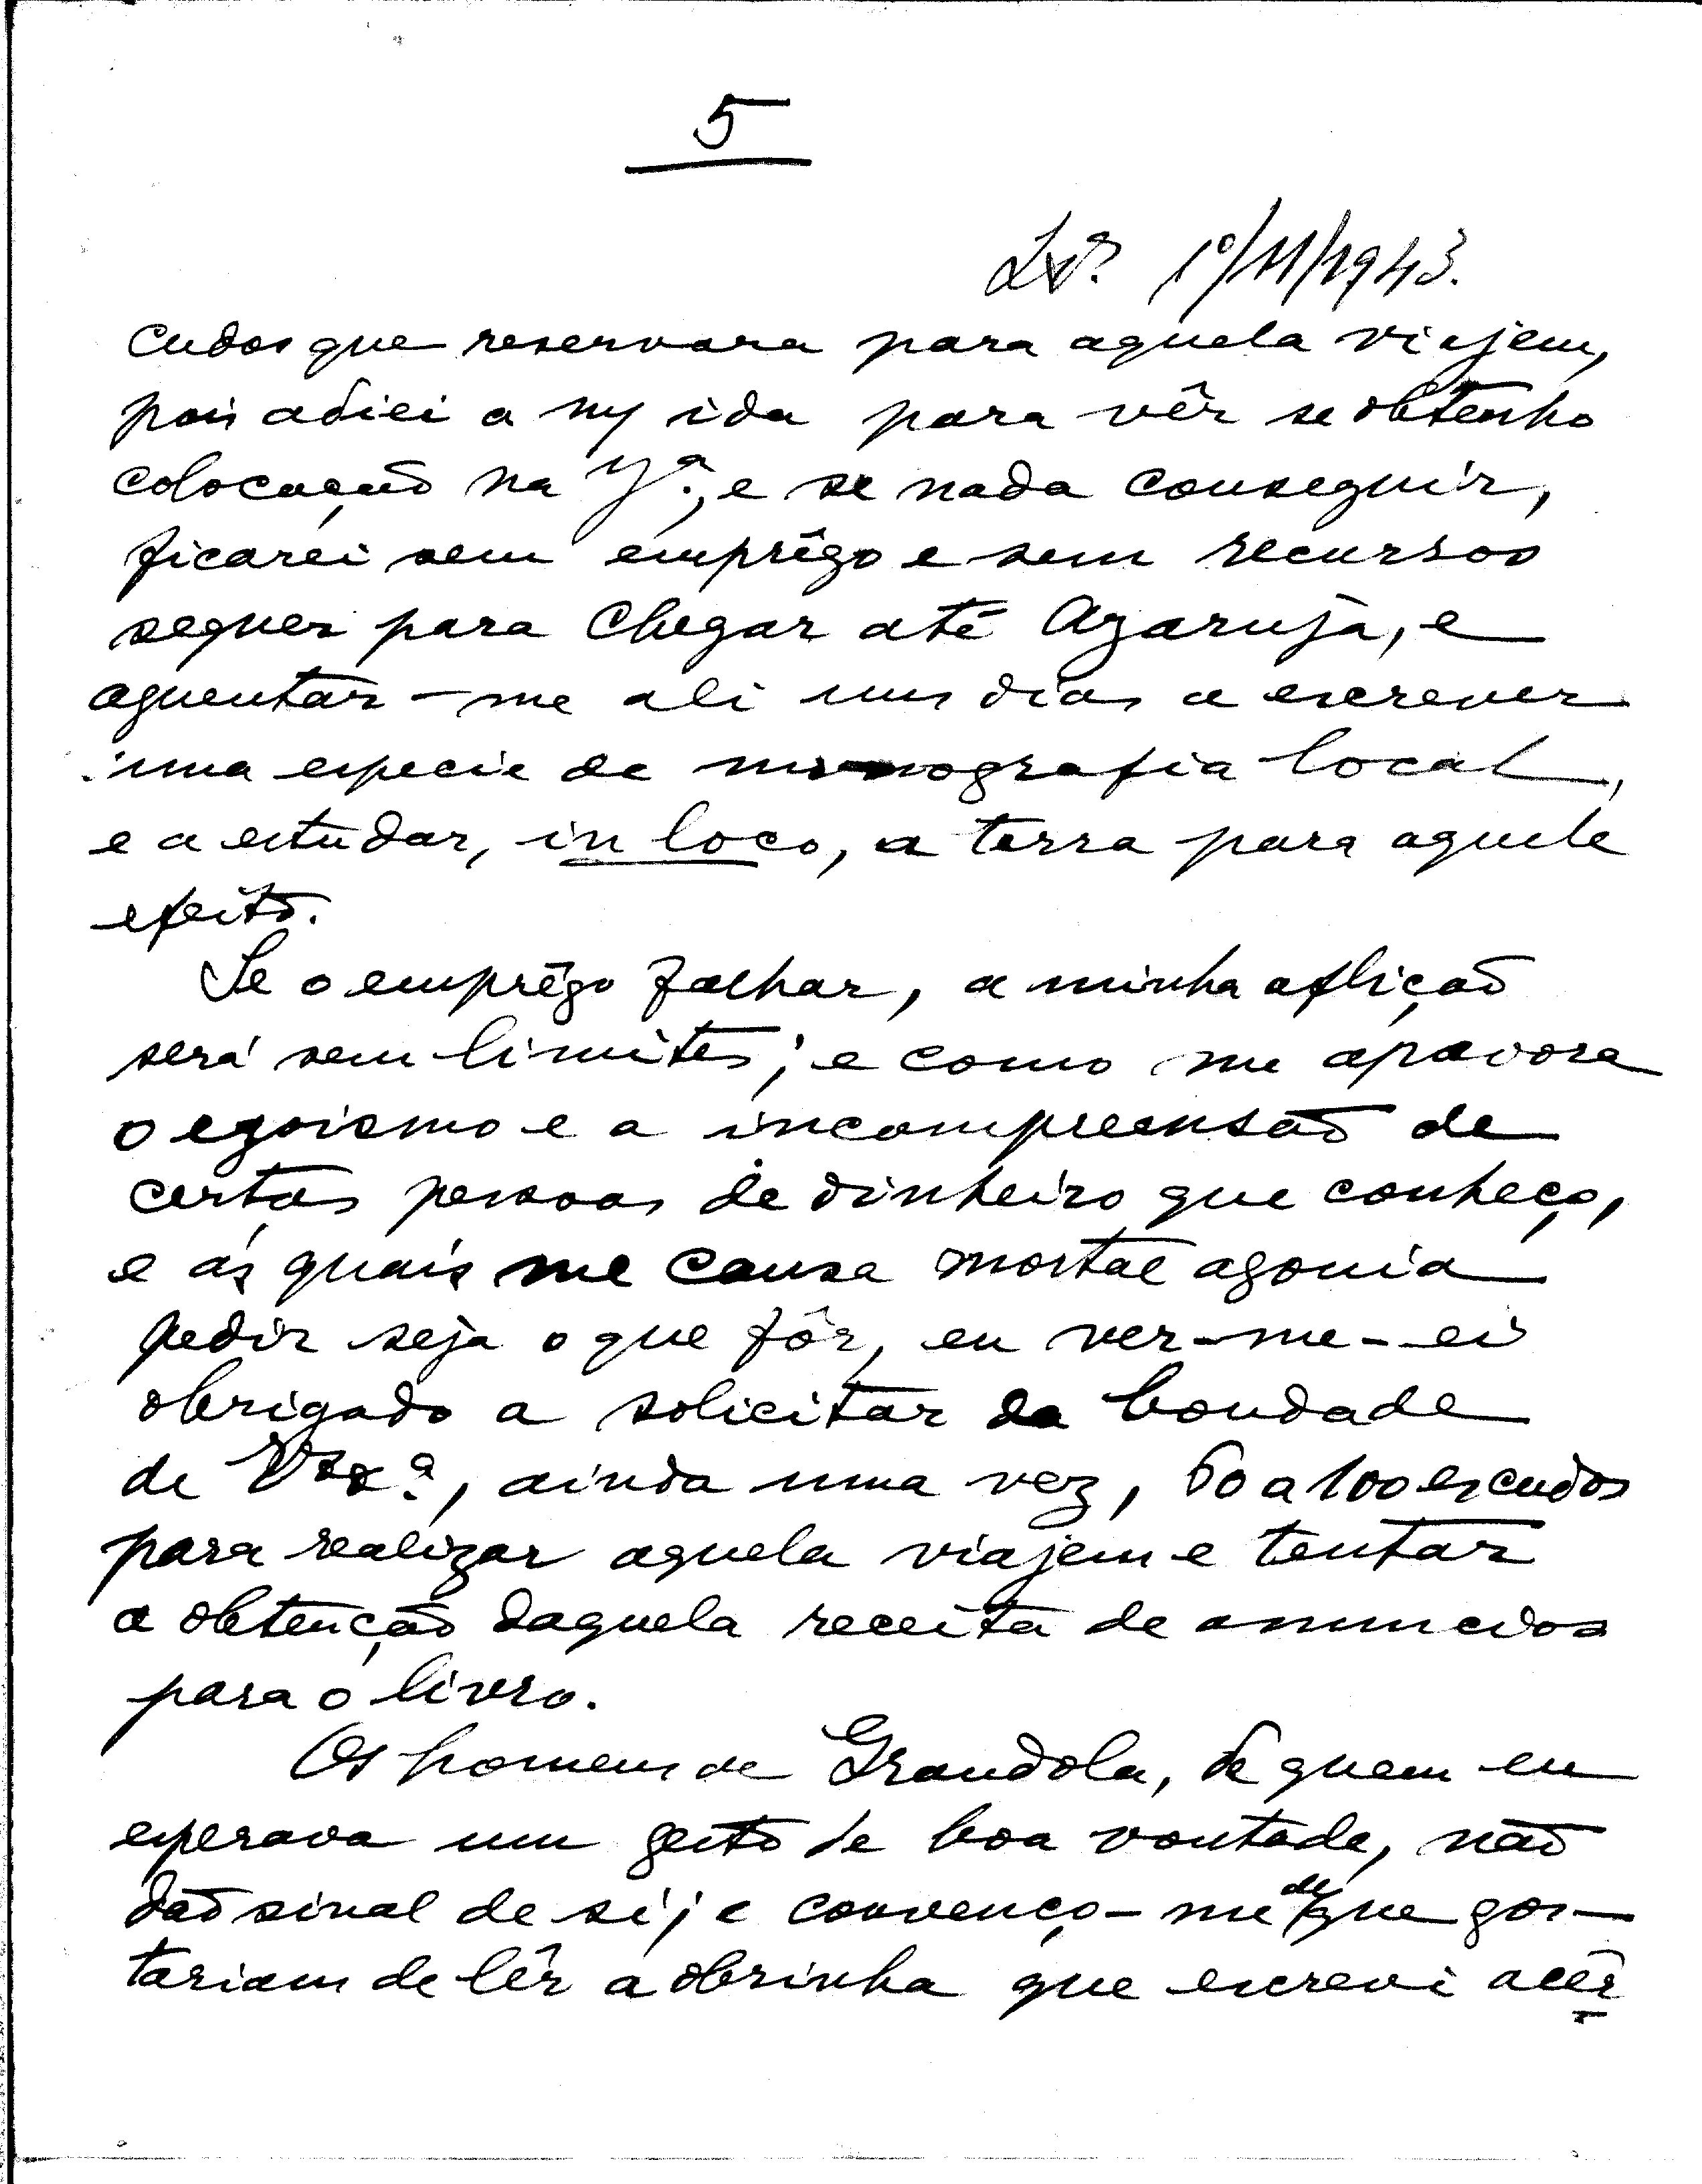 5
Lxª 1º/11/1943.
cudos que reservara para aquela viajem,
pois adiei a mª ida para vêr se obtenho
colocação na Yª, e se nada conseguir,
ficarei sem emprêgo e sem recursos
sequer para chegar até Azaruja, e
aguentar-me ali uns dias a escrever
uma especie de monografia local,
e a estudar, in loco, a terra para aquele
efeito.
Se o emprêgo falhar, a minha aflição
será sem limites; e como me apavora
o egoismo e a incompreensão de
certas pessoas de dinheiro que conheço,
e ás quais me causa mortal agonia
pedir seja o que fôr, eu ver-me-ei
obrigado a solicitar da bondade
de V Exª, ainda uma vez, 60 a 100 escudos
para realizar aquela viajem e tentar
a obtenção daquela receita de anuncios
para o livro.
Os homens de Grandola, de quem eu
esperava um gesto de boa vontade, não
dão sinal de si; e convenço-me de que gos-
tariam de lêr a obrinha que escrevi acêr